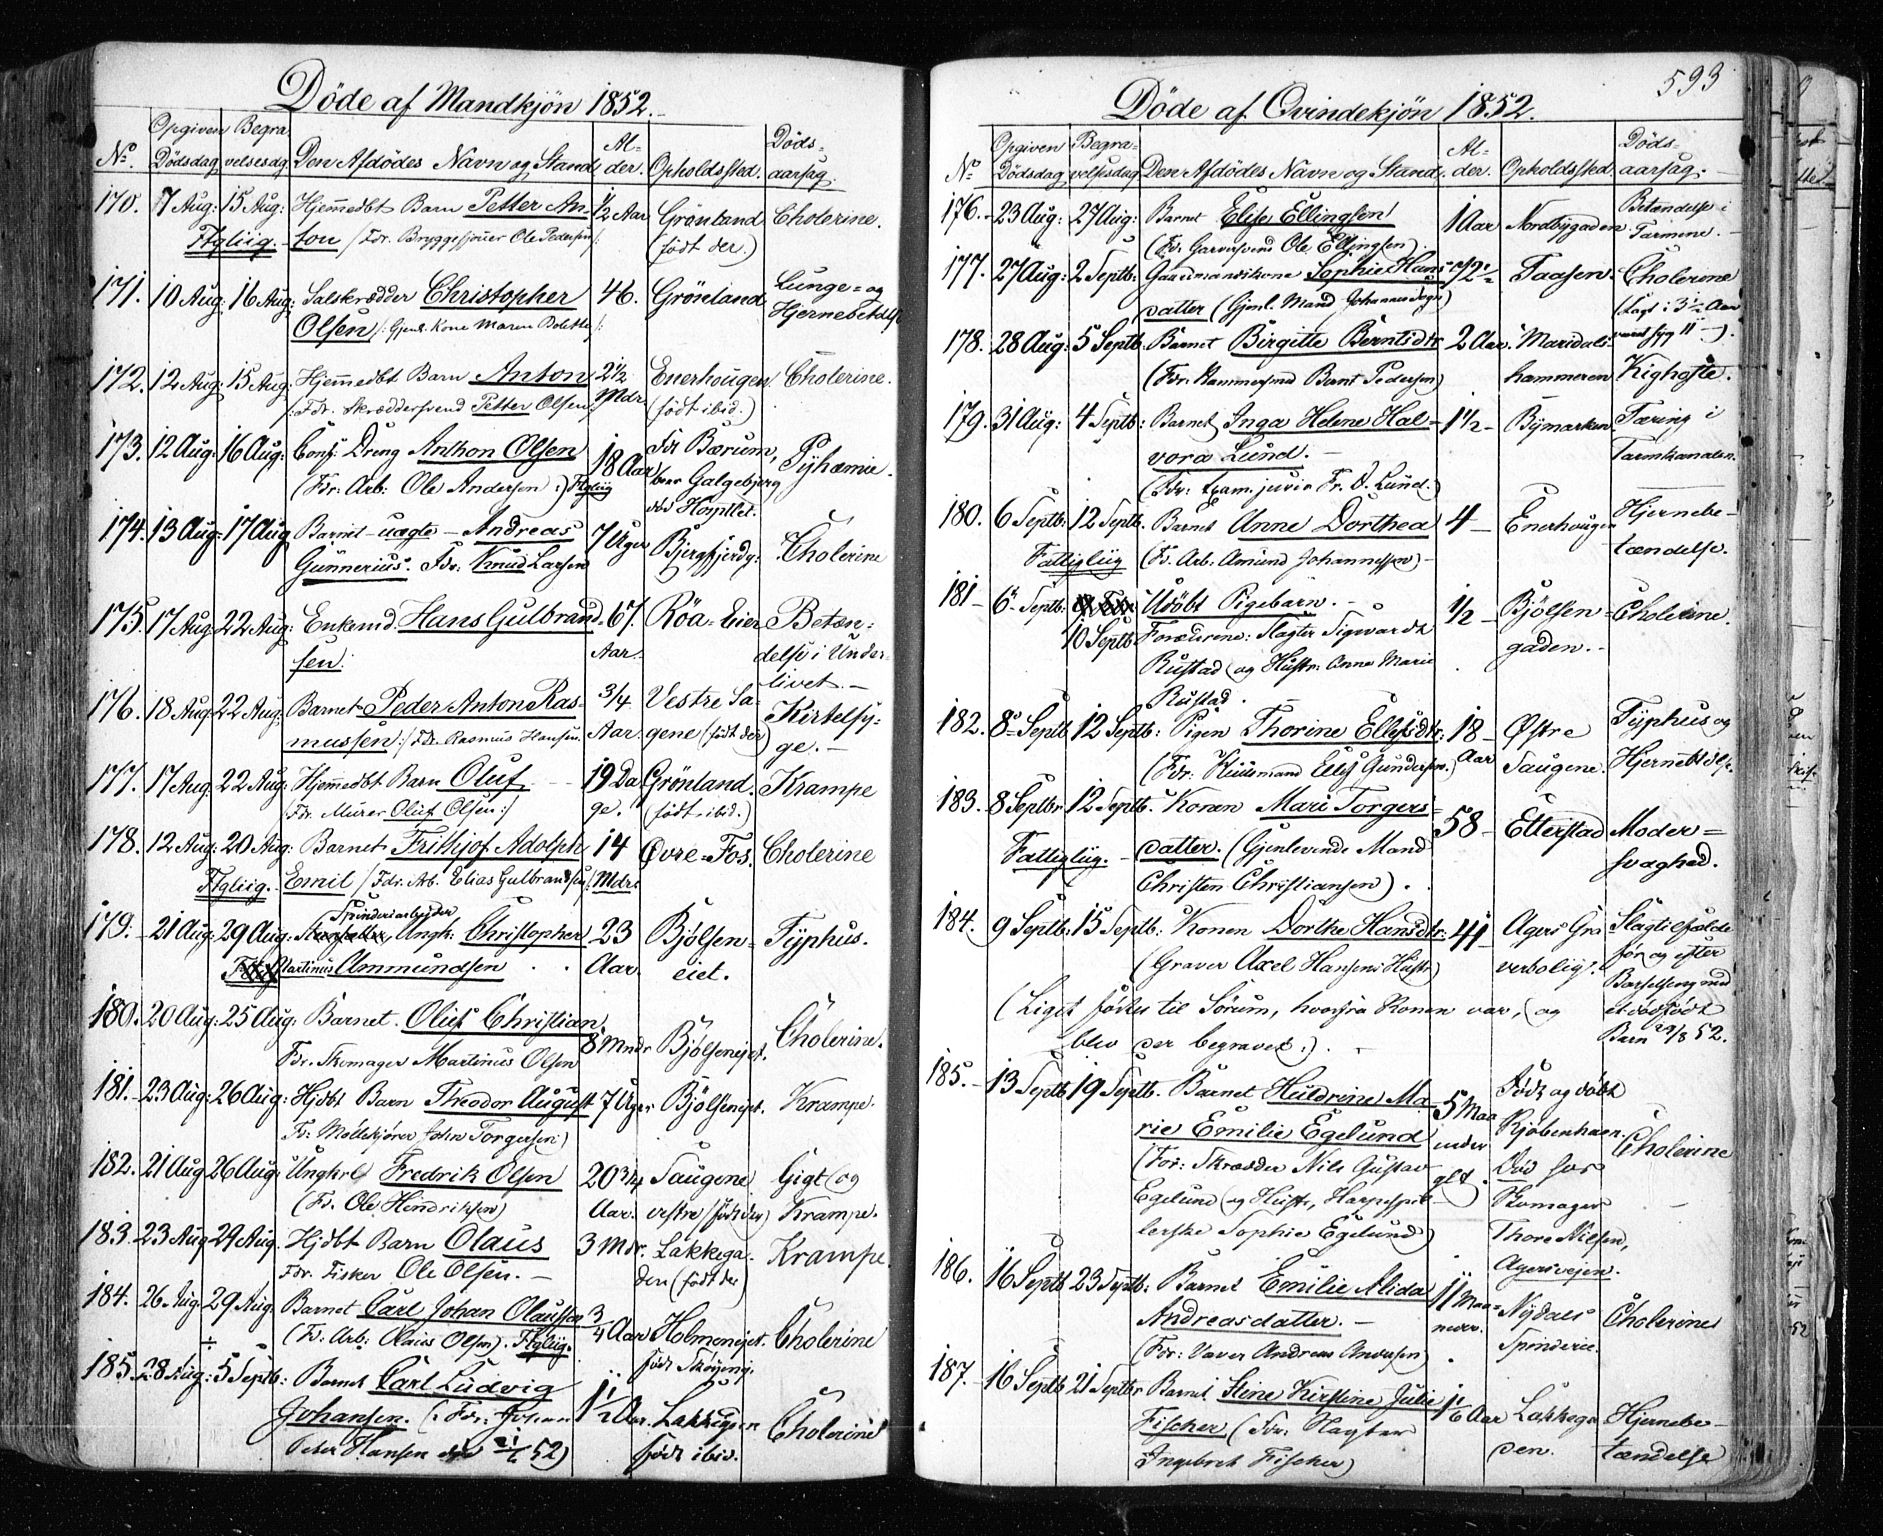 Döde af Mandkjön 1852.
No. Opgiven Dödsdag Begravelsesdag Den Afdödes Navn og Stand Alder. Opholdssted. Dödsaarsag.
170. 7 Aug: 15 Aug: Hjemmedbt Barn Petter An- 1/2 Aar Grönland Cholerine.
Ftgliig. ton /: Fdr. Bryggesjouer Ole Pedersen :/ (født der.)
171. 10 Aug: 16 Aug: Salskrædder Christopher 46. Grönland Lunge- og
Olsen /: Gjenl. Kone Maren Bolette :/ Hjernebetdlse
172. 12 Aug: 15 Aug: Hjemmedbt Barn Anton 2 1/2 Enerhougen Cholerine.
/: Fdr. Skræddersvend Petter Olsen :/ Mdr. (født ibid.)
173. 12 Aug: 16 Aug: Conf. Dreng Anthon Olsen 18 Aar Fdt Bærum, Pyhæmie.
(Fdr: Arb: Ole Andersen :) Ftgliig boer Galgebjerg
død Hospitlet.
174. 13 Aug: 17 Aug Barnet - uægte - Andreas 7 Uger Bjergfjerdg: Cholerine
Gunnerius. Fdr: Knud Larsen
175. 17 Aug: 22 Aug: Enkemd. Hans Gulbrand- 67. Röa-Eier Betæn-
sen. Aar. delse i Under-
livet. -
176. 18 Aug: 22 Aug: Barnet Peder Anton Ras- 3/4 Vestre Sa- Kirtelsy-
mussen /: Fdr. Rasmus Hansen. Aar. gene (født der) ge. -
177. 17 Aug: 22 Aug: Hjemmedbt Barn Oluf 19 Da Grönland. Krampe
/: Fdr. Murer Oluf Olsen :/ ge. (født ibid.)
178. 12 Aug: 20 Aug: Barnet Frithjof Adolph 14 Øvre-Fos. Cholerine
Ftgliig. Emil /: Fdr. Arb. Elias Gulbrandsen :/ Mdr.
179. 21 Aug: 29 Aug: Spinderiarbeider Ungk. Christopher 23 Bjölsen- Typhus.
Martinus Ammundsen Aar. eiet.
180. 20 Aug: 25 Aug: Barnet Oluf Christian. 8 Mndr Bjölseneiet. Cholerine.
Fdr. Skomager Martinus Olsen
181. 23 Aug: 26 Aug: Hjdbt Barn Theodor August 7 Uger Bjölseneiet. Krampe.
Fr: Möllekjörer John Torgersen.)
182. 21 Aug 26 Aug: Ungkrl Fredrik Olsen 20 3/4 Saugene Gigt og
(Fr. Ole Hendriksen) Aar. vestre (født der) Krampe.
183. 23 Aug 29 Aug. Hjdbt Barn Olaus 3 Mdr. Lakkega- Krampe.
Fdr. Fisker Ole Olsen. - den (født der)
184. 26 Aug. 29 Aug. Barnet Carl Johan Olaussen 3/4 Aar Holmeneiet. Cholerine
(Fr: Arb: Olaus Olsen). Ftgliig. født Skøyeneje.
185. 28 Aug: 5 Septb: Barnet Carl Ludvig 1 1/2 Aar. Lakkegaden Cholerine
Johansen. (: Fdr: Johan født ibid.
Peter Hansen 52)
593
Döde af Qvindekjön 1852.
No Opgiven Dödsdag Begravelsesdag Den Afdödes Navn og Stand. Alder. Opholdssted. Dödsaarsag.
176. 23 Aug: 27 Aug: Barnet Elise Ellingsen 1 Aar Nordbygaden Betændelse i
(Fr. Garversvend Ole Ellingsen). Tarmene. -
177. 27 Aug: 2 Septb: Gaardmandskone Sophie Hans- Taasen. Cholerine
datter (Gjenl. Mand Johannes) (Lagt i 3 1/2 Aar
været syg
178. 28 Aug: 5 Septb. Barnet Birgitte Berntsdtr 2 Aar. Maridals-
(Fdr. Hammersmed Bernt Pedersen) hammeren Kighoste.
179. 31 Aug: 4 Septb: Barnet Inga Helene Hal- 1 1/2 - Bymarken Tæring i
vora Lund. - Tarmkanalen.
(Fdr: Exam. juris Fr. O. Lund.)
180. 6 Septb: 12 Septb. Barnet Anne Dorthea 4 - Enerhougen Hjernebe-
Fattigliig (Fr. Arb. Amund Johannessen) - tændelse.
181 - 6 Septb: 10 Septb. Udöbt Pigebarn. - 1/2 - Bjölsen- Cholerine.
Forældrene: Slagter Sigwardt gaden. -
Rustad og Hustr: Anne Marie
Rustad.
182. 8 Septb 12 Septb: Pigen Thorine Ellefsdtr: 18 - Østre Typhus og
(Fdr: Huusmand Ellef Gundersen. Aar Saugene. Hjernebtdlse.
183. 8 Septbr 12 Septb. Konen Mari Torgers- 58 - Etterstad Moder-
Fattigliig. - datter. (Gjenlevende Mand svaghed.
Christen Christiansen).
184. 9 Septb: 15 Septb. Konen Dorthe Hansdtr: 41 Agers Gra- Slagtilfælde
(Graver Axel Hansens Hustr) verbolig. før og efter
Barselseng med
(Liget førtes til Sörum, hvorfra Konen var, og et dødfødt
blev der begravet.). Barn 29/8 52.
185. - 13 Septb 19 Septb. Barnet Huldrine Ma- 5 Maa- Født og døbt
rie Emilie Egelund neder Kjøbenhavn Cholerine
(For: Skrædder Nils Gustav gl. Død hos
Egelund og Hustr, Harpespil- Skomager
lerske Sophie Egelund) Thore Nilsen,
Agersveien.
186. 16 Septb 23 Septb: Barnet Emilie Alida 11 Maa- Nydals Cholerine
Andreasdatter. - neder. Spinderie.
(For: Væver Andreas Andersen)
187. - 16 Septb 21 Septbr Barnet Stine Kirstine Julie 1 1/6 Aar Lakkega- Hjernebe-
Fischer (Fdr: Slagter den. tændelse
Ingebret Fischer)